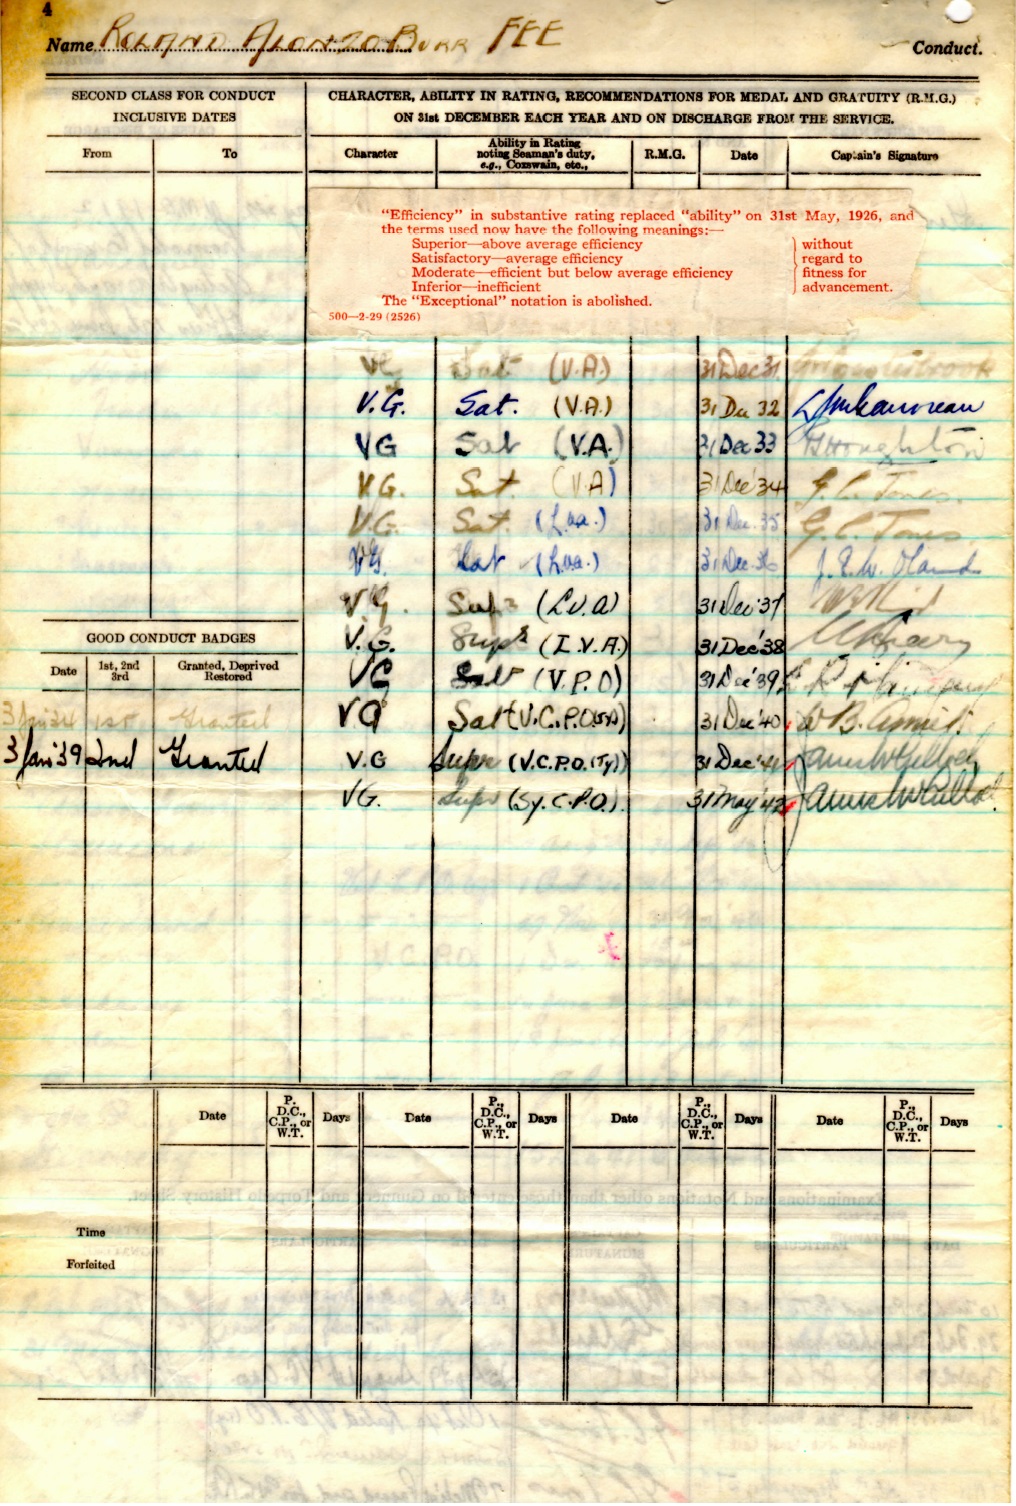 4
Name Roland Alonzo Burr FEE Conduct.
SECOND CLASS FOR CONDUCT
INCLUSIVE DATES
From To
CHARACTER, ABILITY IN RATING, RECOMMENDATIONS FOR MEDAL AND GRATUITY (R.M.G.)
ON 31st DECEMBER EACH YEAR AND ON DISCHARGE FROM THE SERVICE.
Character Ability in Rating noting Seaman's duty, e.g., Coxswain, etc., R.M.G. Date Captain's Signature
"Efficiency" in substantive rating replaced "ability" on 31st May, 1926, and
the terms used now have the following meanings:—
Superior—above average efficiency
Satisfactory—average efficiency
Moderate—efficient but below average efficiency
Inferior—inefficient
without
regard to
fitness for
advancement.
The "Exceptional" notation is abolished.
500—2-29 (2526)
VG Sat (V.A) 31 Dec 31
V.G. Sat. (V.A.) 31 Dec 32
VG Sat (V.A.) 31 Dec 33 Houghton
V.G. Sat. (V.A) 31 Dec 34 G. C. Jones.
V.G. Sat. (L.v.a.) 31 Dec. 35 G. C. Jones
VG. Sat (L.v.a.) 31 Dec. 36 J. E. W. Oland
VG. Supr (L.V.A) 31 Dec '37
V.G. Supr (L.V.A.) 31 Dec '38
VG Sat (V.P.O) 31 Dec '39
VG Sat (V.C.P.O (Ty)) 31 Dec '40
V.G Supr (V.C.P.O. (Ty)) 31 Dec '41
VG. Supr (Sy. C.P.O.). 31 May '42
GOOD CONDUCT BADGES
Date 1st, 2nd 3rd Granted, Deprived Restored
3 Jan 34 1st Granted
3 Jan '39 2nd Granted
Date P. D.C., C.P., or W.T. Days Date P., D.C., C.P., or W.T. Days Date P., D.C., C.P., or W.T. Days Date P., D.C., C.P., or W.T. Days
Time
Forfeited